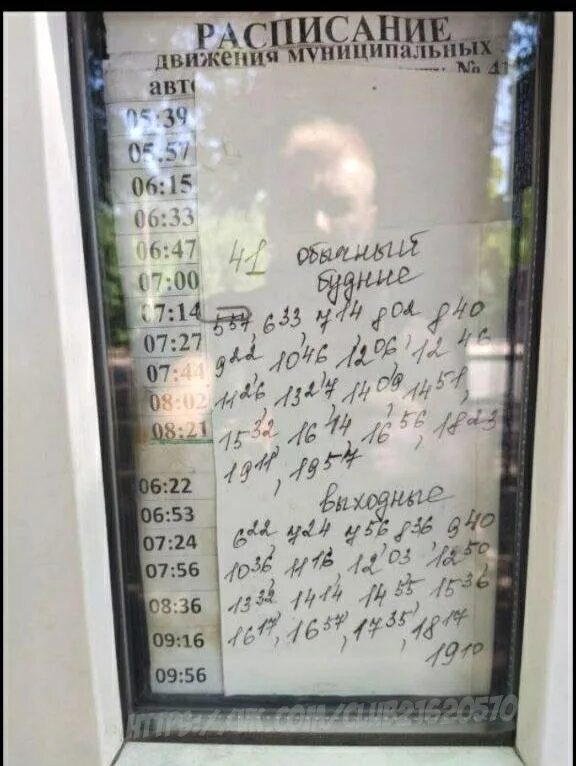 РАСПИСАНИЕ
ДВИЖЕНИЯ МУНИЦИПАЛЬНЫХ
№ 41
05:39
05.57
06:15
06:33
06:47
07:00
07:14
07:27
07:44
08:02
08:21
06:22
06:53
07:24
07:56
08:36
09:16
09:56
41 обычный
будние
5 57, 6 33 7 14 8 02 8 40
9 22 10 46, 12 06, 12 46
11 26, 13 27 14 09, 14 51,
15 32, 16 14 16 56, 18 23
19 11, 19 57
выходные
6 22 7 24 7 56 8 36 9 40
10 36 11 16 12 03, 12 50
13 32 14 14 14 55 15 36
16 17, 16 57, 17 35, 18 17
19 10
HTTPS://VK.COM/CLUB21620570